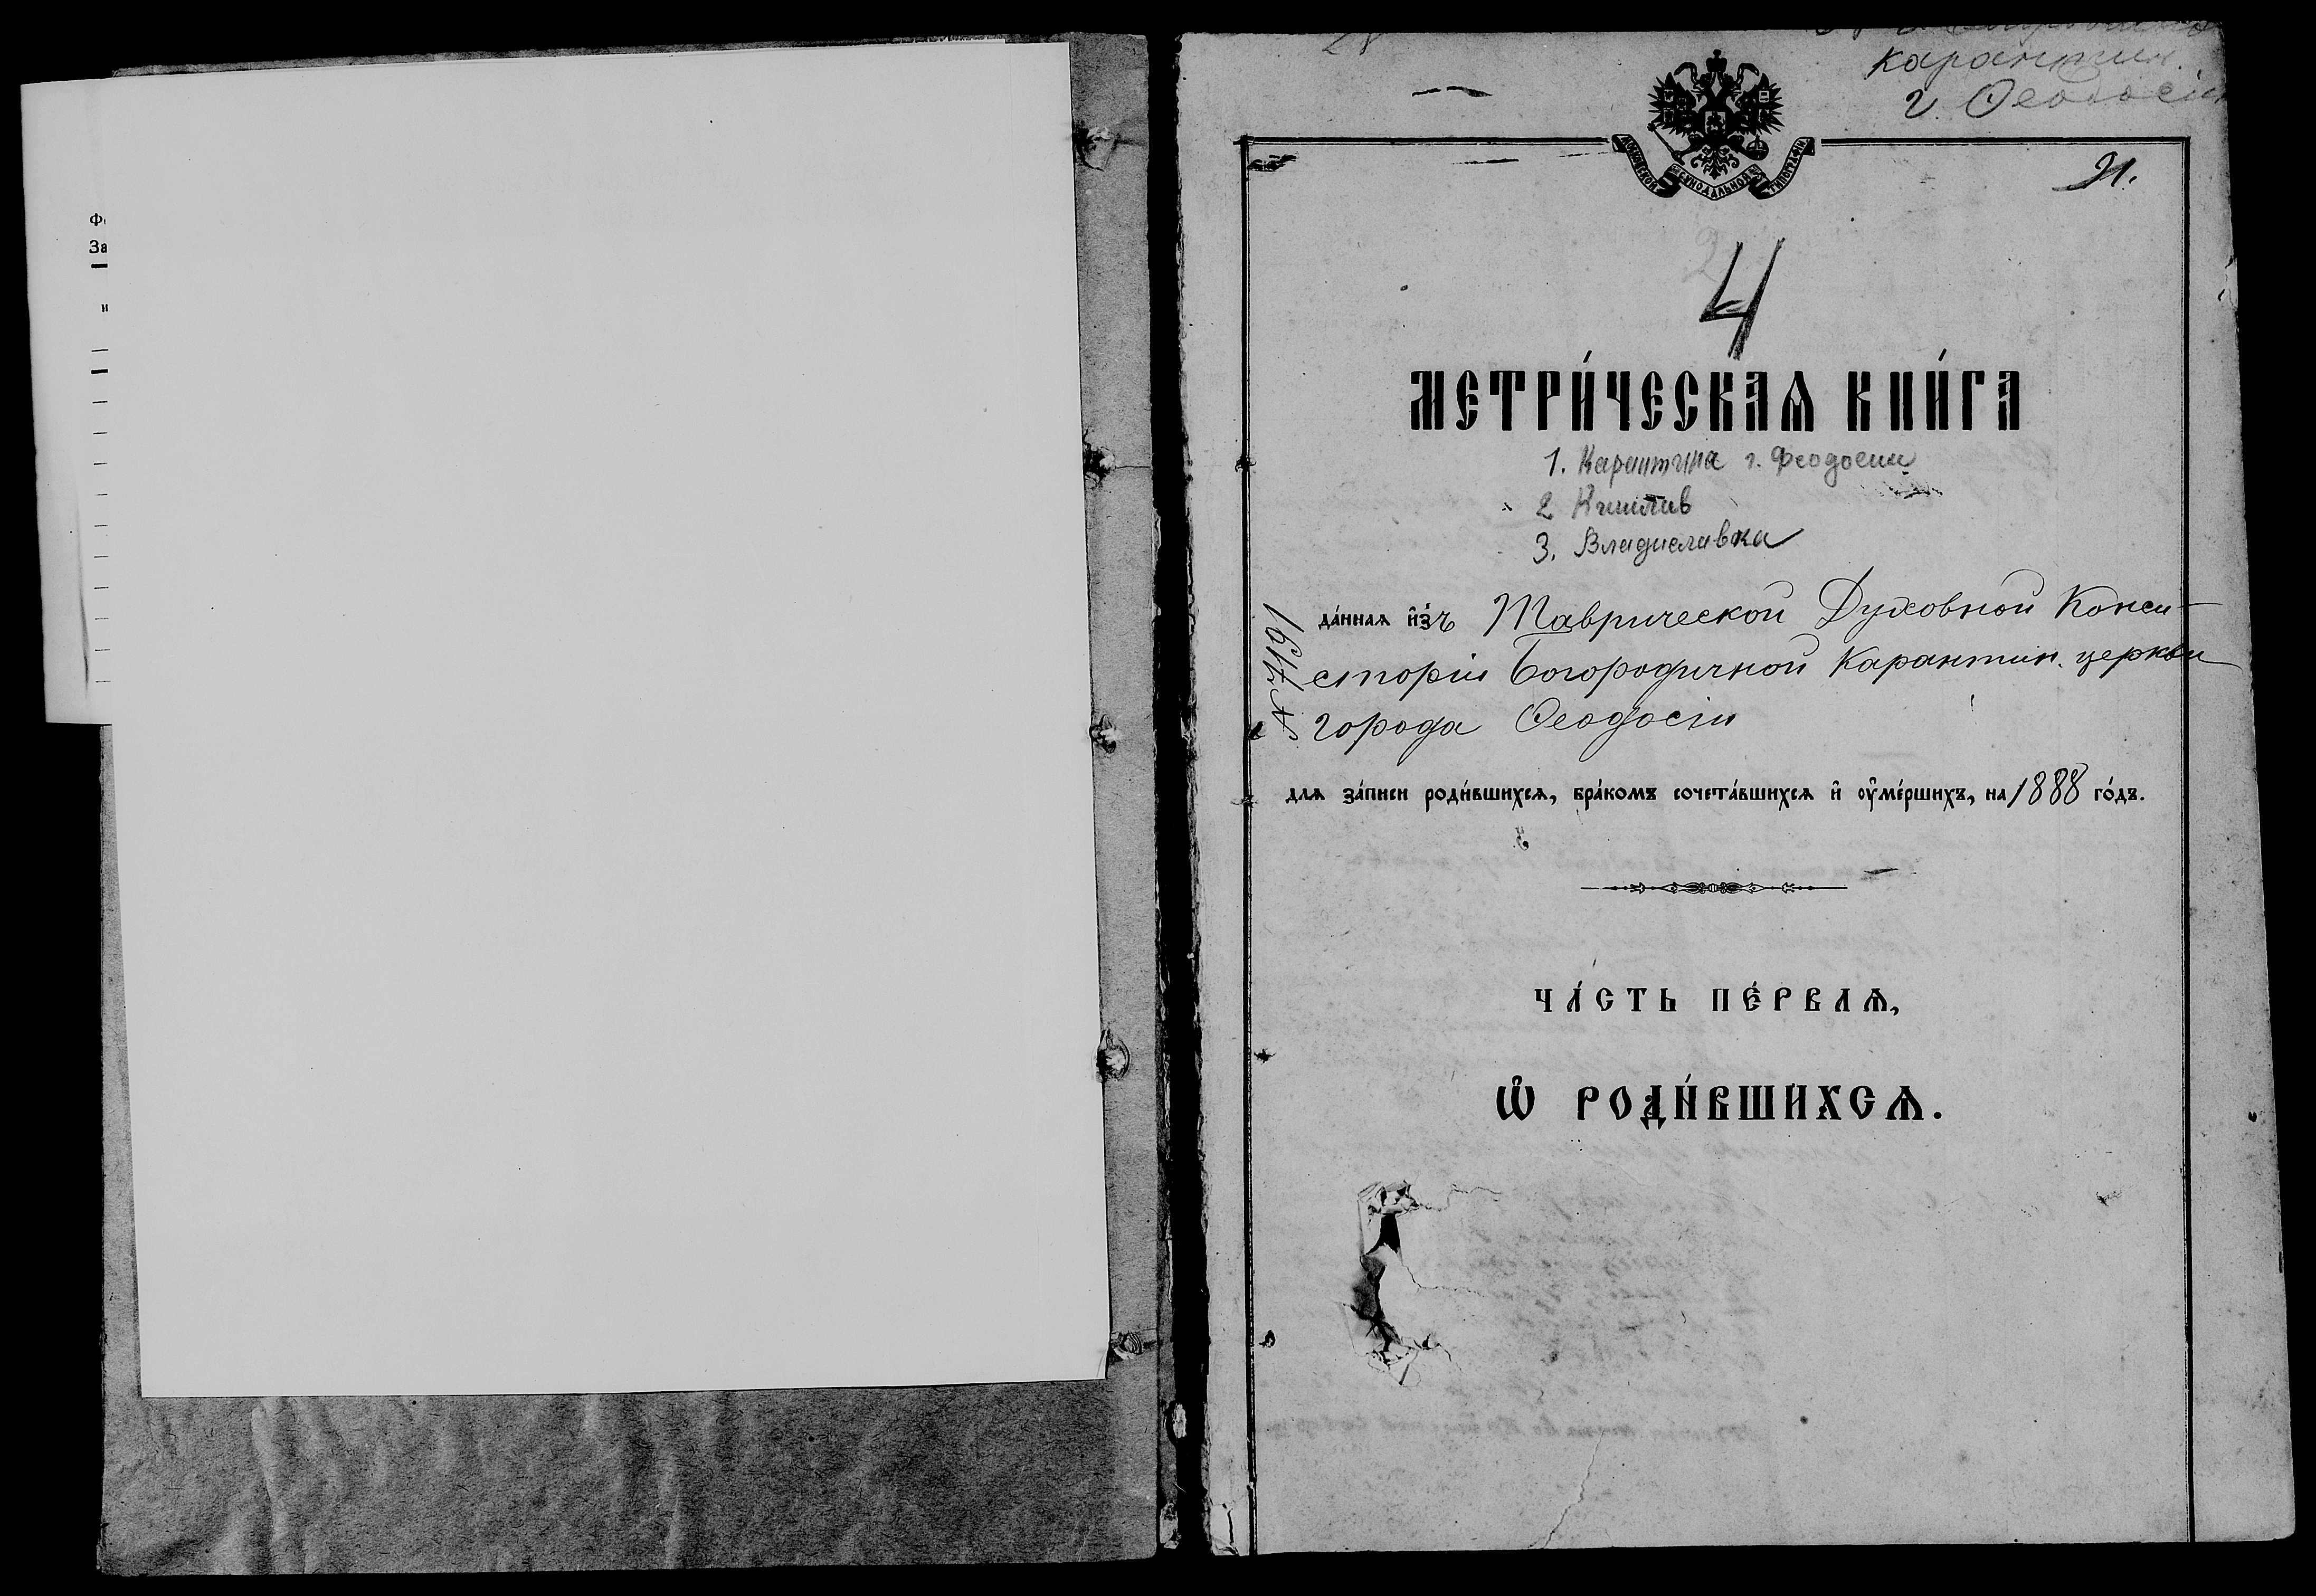 Ф
За
и
карантин.
г. Ѳеодосіи
МОСКОВСКОЙ СѴНОДАЛЬНОЙ ТИПОГРАФІИ
91.
4
МЕТРИ́ЧЕСКАѦ КНИ́ГА
1. Карантина г. Феодосии
2 Кишлав
3. Владиславка
да́ннаѧ и҆зъ Таврической Духовной Конси-
сторіи Богородичной Карантин. церкви
города Ѳеодосіи
длѧ за́писи роди́вшихсѧ, бра́комъ сочета́вшихсѧ и҆ ᲂу҆ме́ршихъ, на 1888 го́дъ.
ЧА́СТЬ ПЕ́РВАѦ,
Ѡ҆ РОДИ́ВШИХСѦ.